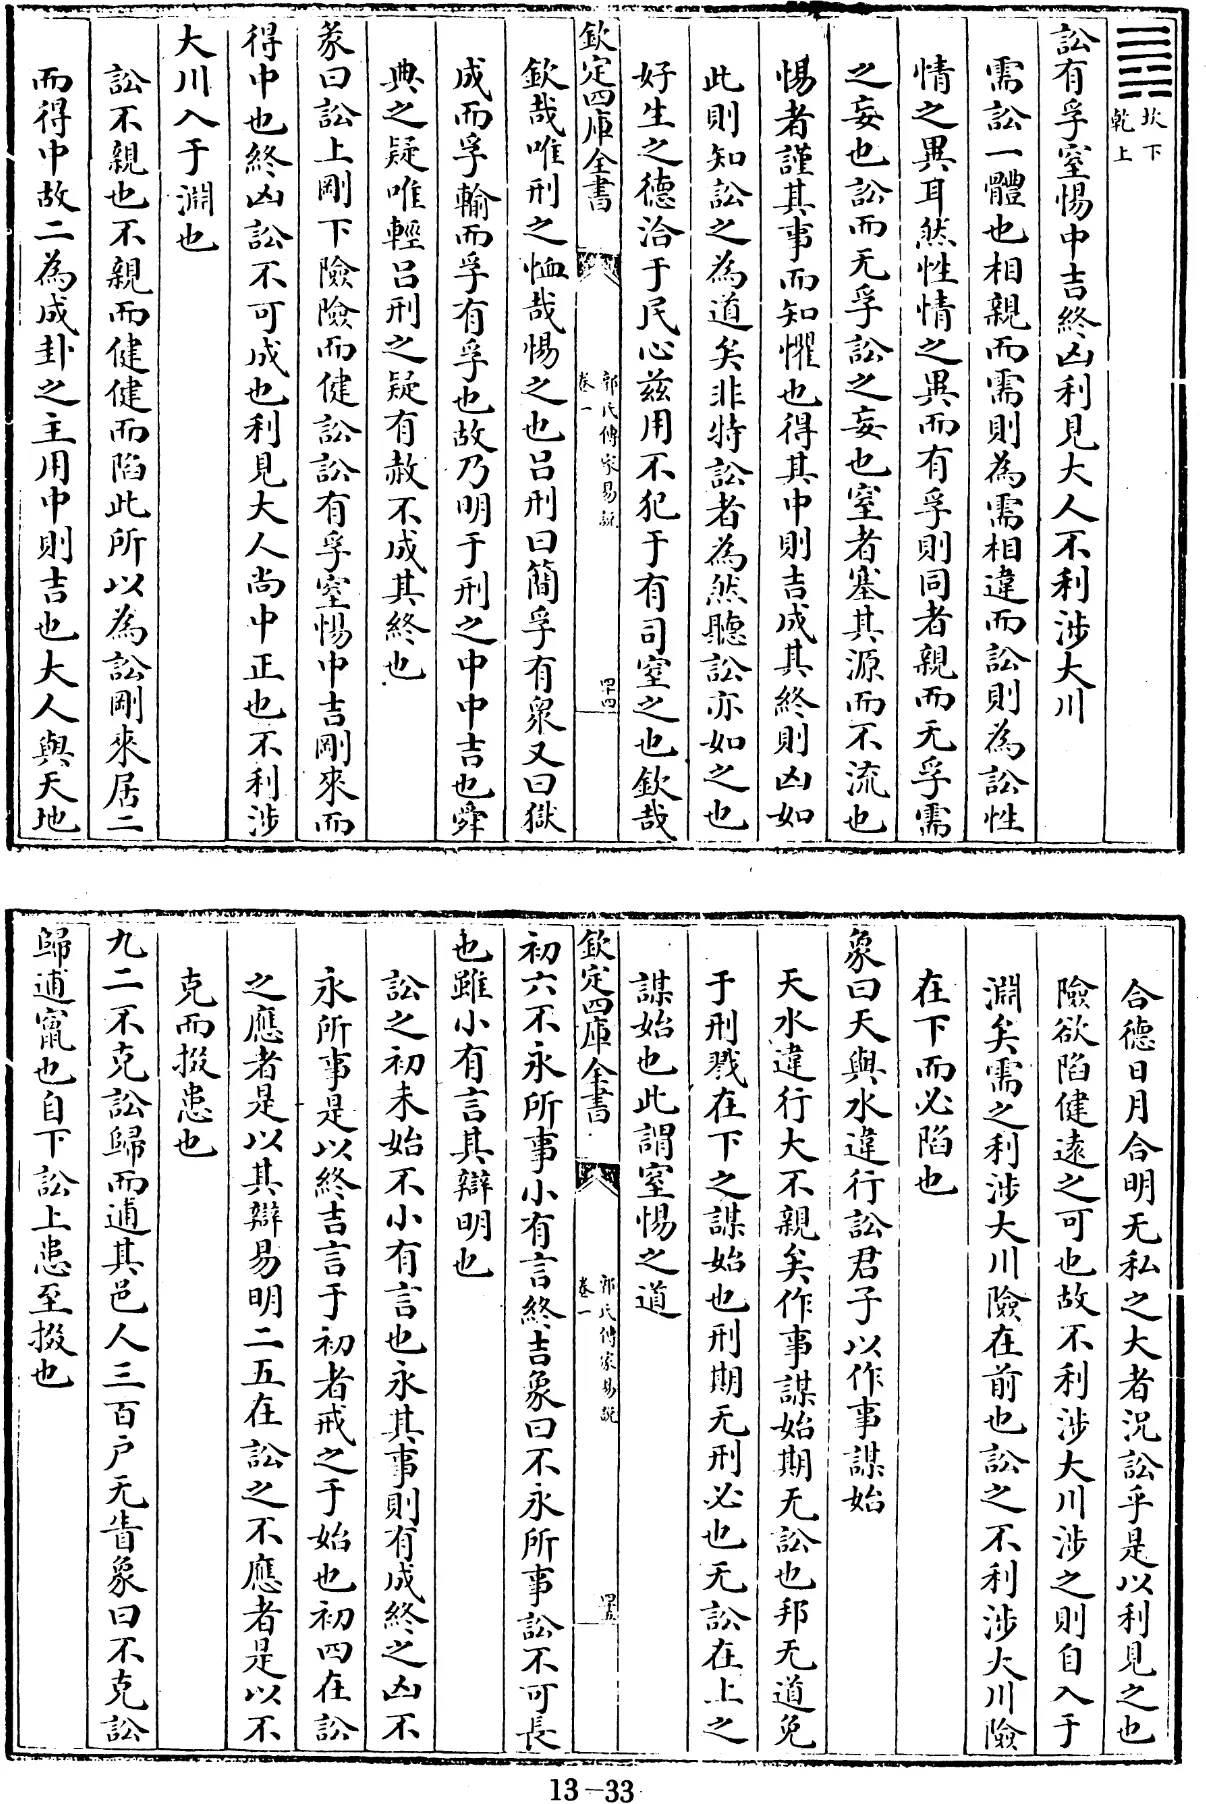 ䷅坎下
乾上
訟有孚窒惕中吉終凶利見大人不利涉大川
需訟一體也相親而需則為需相違而訟則為訟性
情之異耳然性情之異而有孚則同者親而无孚需
之妄也訟而无孚訟之妄也窒者塞其源而不流也
惕者謹其事而知懼也得其中則吉成其終則凶如
此則知訟之為道矣非特訟者為然聽訟亦如之也
好生之德洽于民心兹用不犯于有司窒之也欽哉
欽定四庫全書
郭氏傳家易說
卷一
四十四
欽哉唯刑之恤哉惕之也吕刑曰簡孚有衆又曰獄
成而孚輸而孚有孚也故乃明于刑之中中吉也舜
典之疑唯輕吕刑之疑有赦不成其終也
彖曰訟上剛下險險而健訟訟有孚窒惕中吉剛來而
得中也終凶訟不可成也利見大人尚中正也不利涉
大川入于淵也
訟不親也不親而健健而陷此所以為訟剛來居二
而得中故二為成卦之主用中則吉也大人與天地
合德日月合明无私之大者況訟乎是以利見之也
險欲陷健遠之可也故不利涉大川涉之則自入于
淵矣需之利涉大川險在前也訟之不利涉大川險
在下而必陷也
象曰天與水違行訟君子以作事謀始
天水違行大不親矣作事謀始期无訟也邦无道免
于刑戮在下之謀始也刑期无刑必也无訟在上之
謀始也此謂窒惕之道
欽定四庫全書
郭氏傳家易說
卷一
四十五
初六不永所事小有言終吉象曰不永所事訟不可長
也雖小有言其辯明也
訟之初未始不小有言也永其事則有成終之凶不
永所事是以終吉言于初者戒之于始也初四在訟
之應者是以其辯易明二五在訟之不應者是以不
克而掇患也
九二不克訟歸而逋其邑人三百户无眚象曰不克訟
歸逋竄也自下訟上患至掇也
13-33